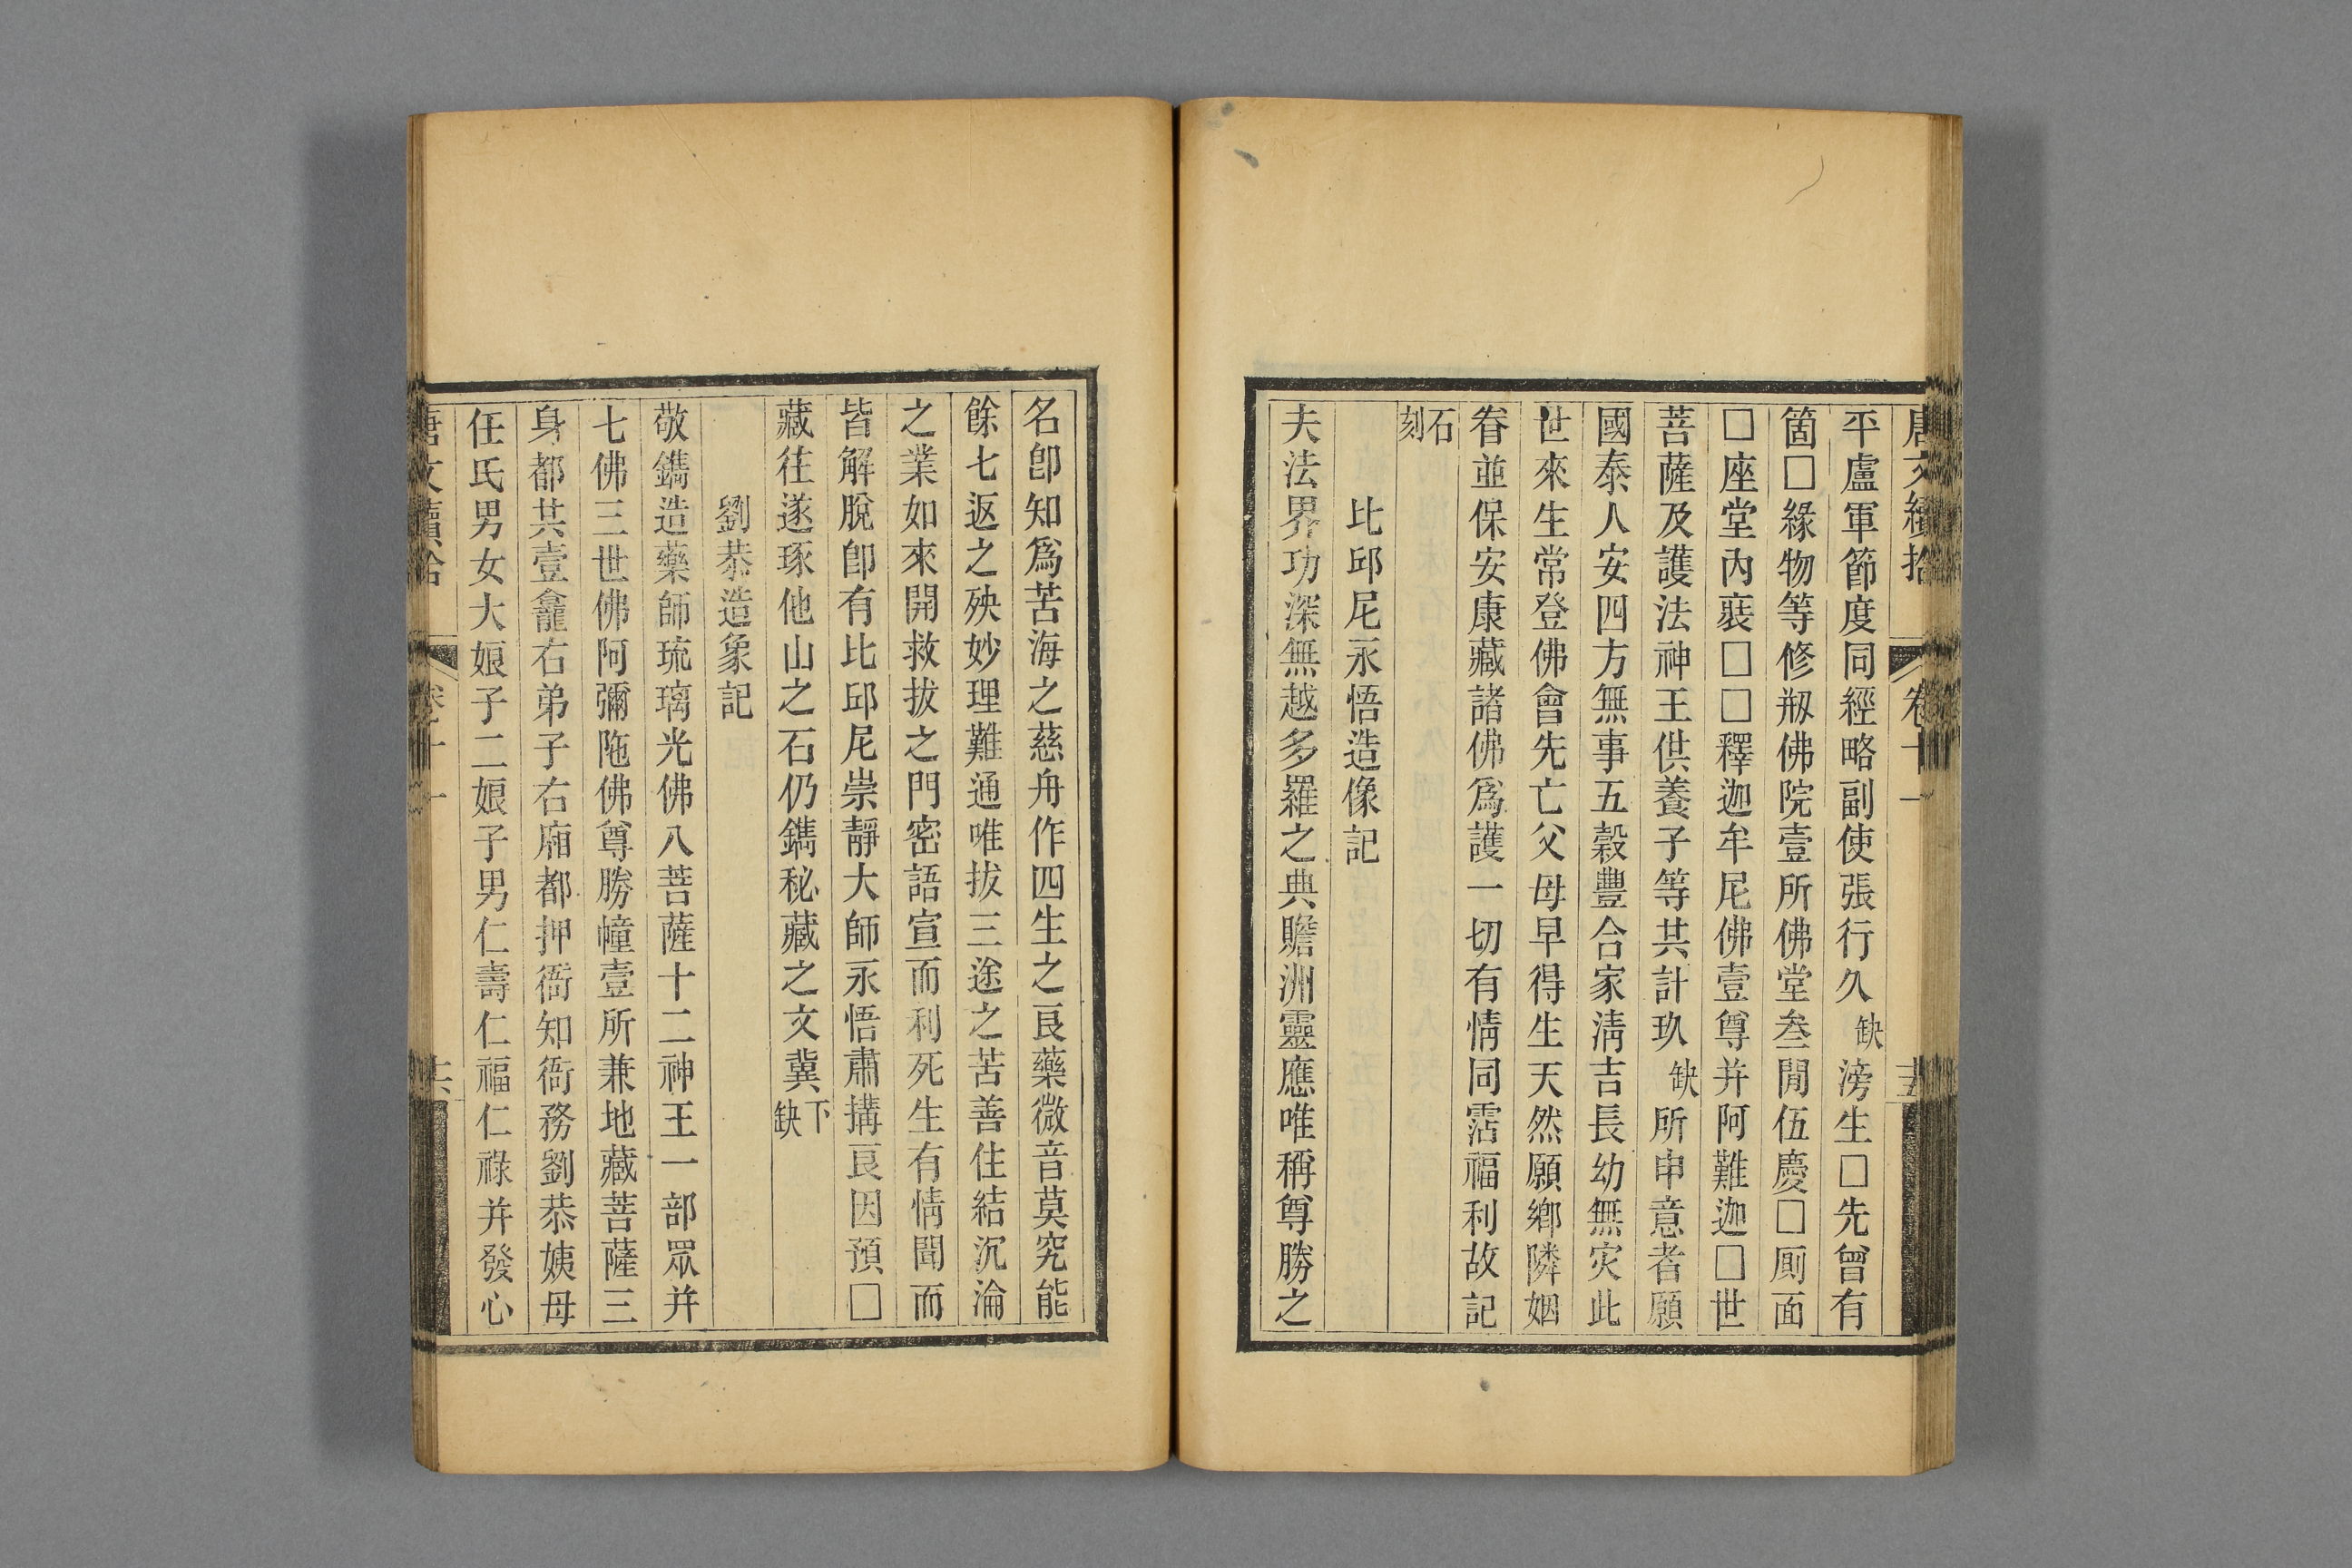 唐文續拾 卷十一 十五
平盧軍節度同經略副使張行久缺滂生□先曾有
箇□緣物等修剏佛院壹所佛堂叁閒伍慶□厠面
□座堂內裝□□釋迦牟尼佛壹尊并阿難迦□世
菩薩及護法神王供養子等共計玖缺所申意者願
國泰人安四方無事五穀豐合家淸吉長幼無灾此
世來生常登佛會先亡父母早得生天然願鄉隣姻
眷並保安康藏諸佛爲護一切有情同霑福利故記
石刻
比邱尼永悟造像記
夫法界功深無越多羅之典贍洲靈應唯稱尊勝之
名卽知爲苦海之慈舟作四生之良藥微音莫究能
餘七返之殃妙理難通唯拔三途之苦善住結沉淪
之業如來開救拔之門密語宣而利死生有情聞而
皆解脫卽有比邱尼崇靜大師永悟肅搆良因預□
藏往遂琢他山之石仍鐫秘藏之文冀下缺
劉恭造象記
敬鐫造藥師琉璃光佛八菩薩十二神王一部眾并
七佛三世佛阿彌陁佛尊勝幢壹所兼地藏菩薩三
身都共壹龕右弟子右廂都押衙知衙務劉恭姨母
任氏男女大娘子二娘子男仁壽仁福仁祿并發心
唐文續拾 卷十一 十六